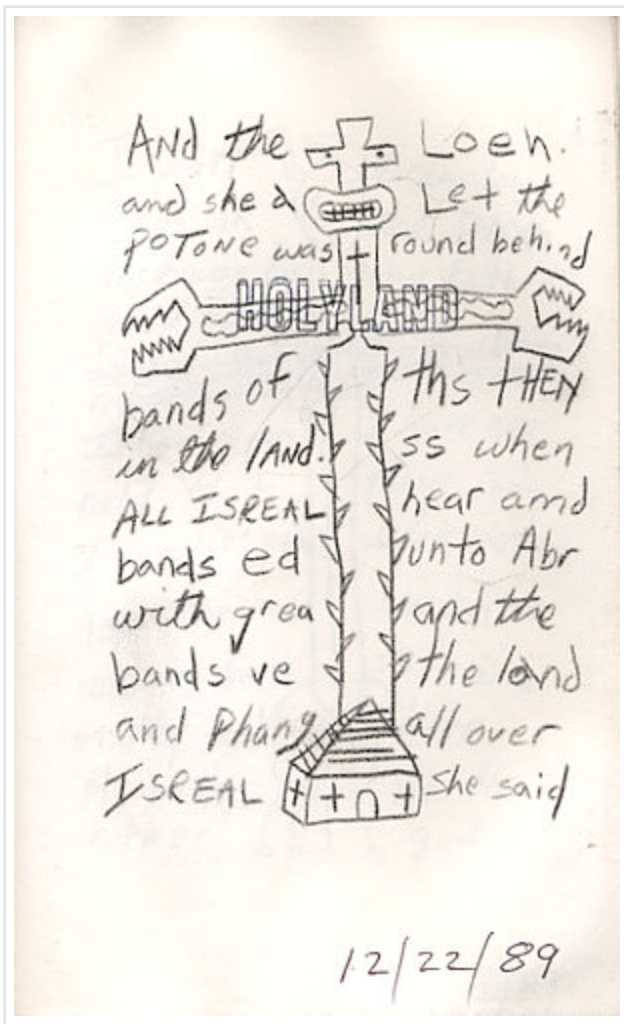 AND the Loeh.
and she a Let the
POTONE was round behind
HOLYLAND
bands of ths tHEN
in the lAND. ss when
ALL ISREAL hear amd
bands ed unto Abr
with grea and the
bands ve the land
and Phang all over
ISREAL she said
12/22/89